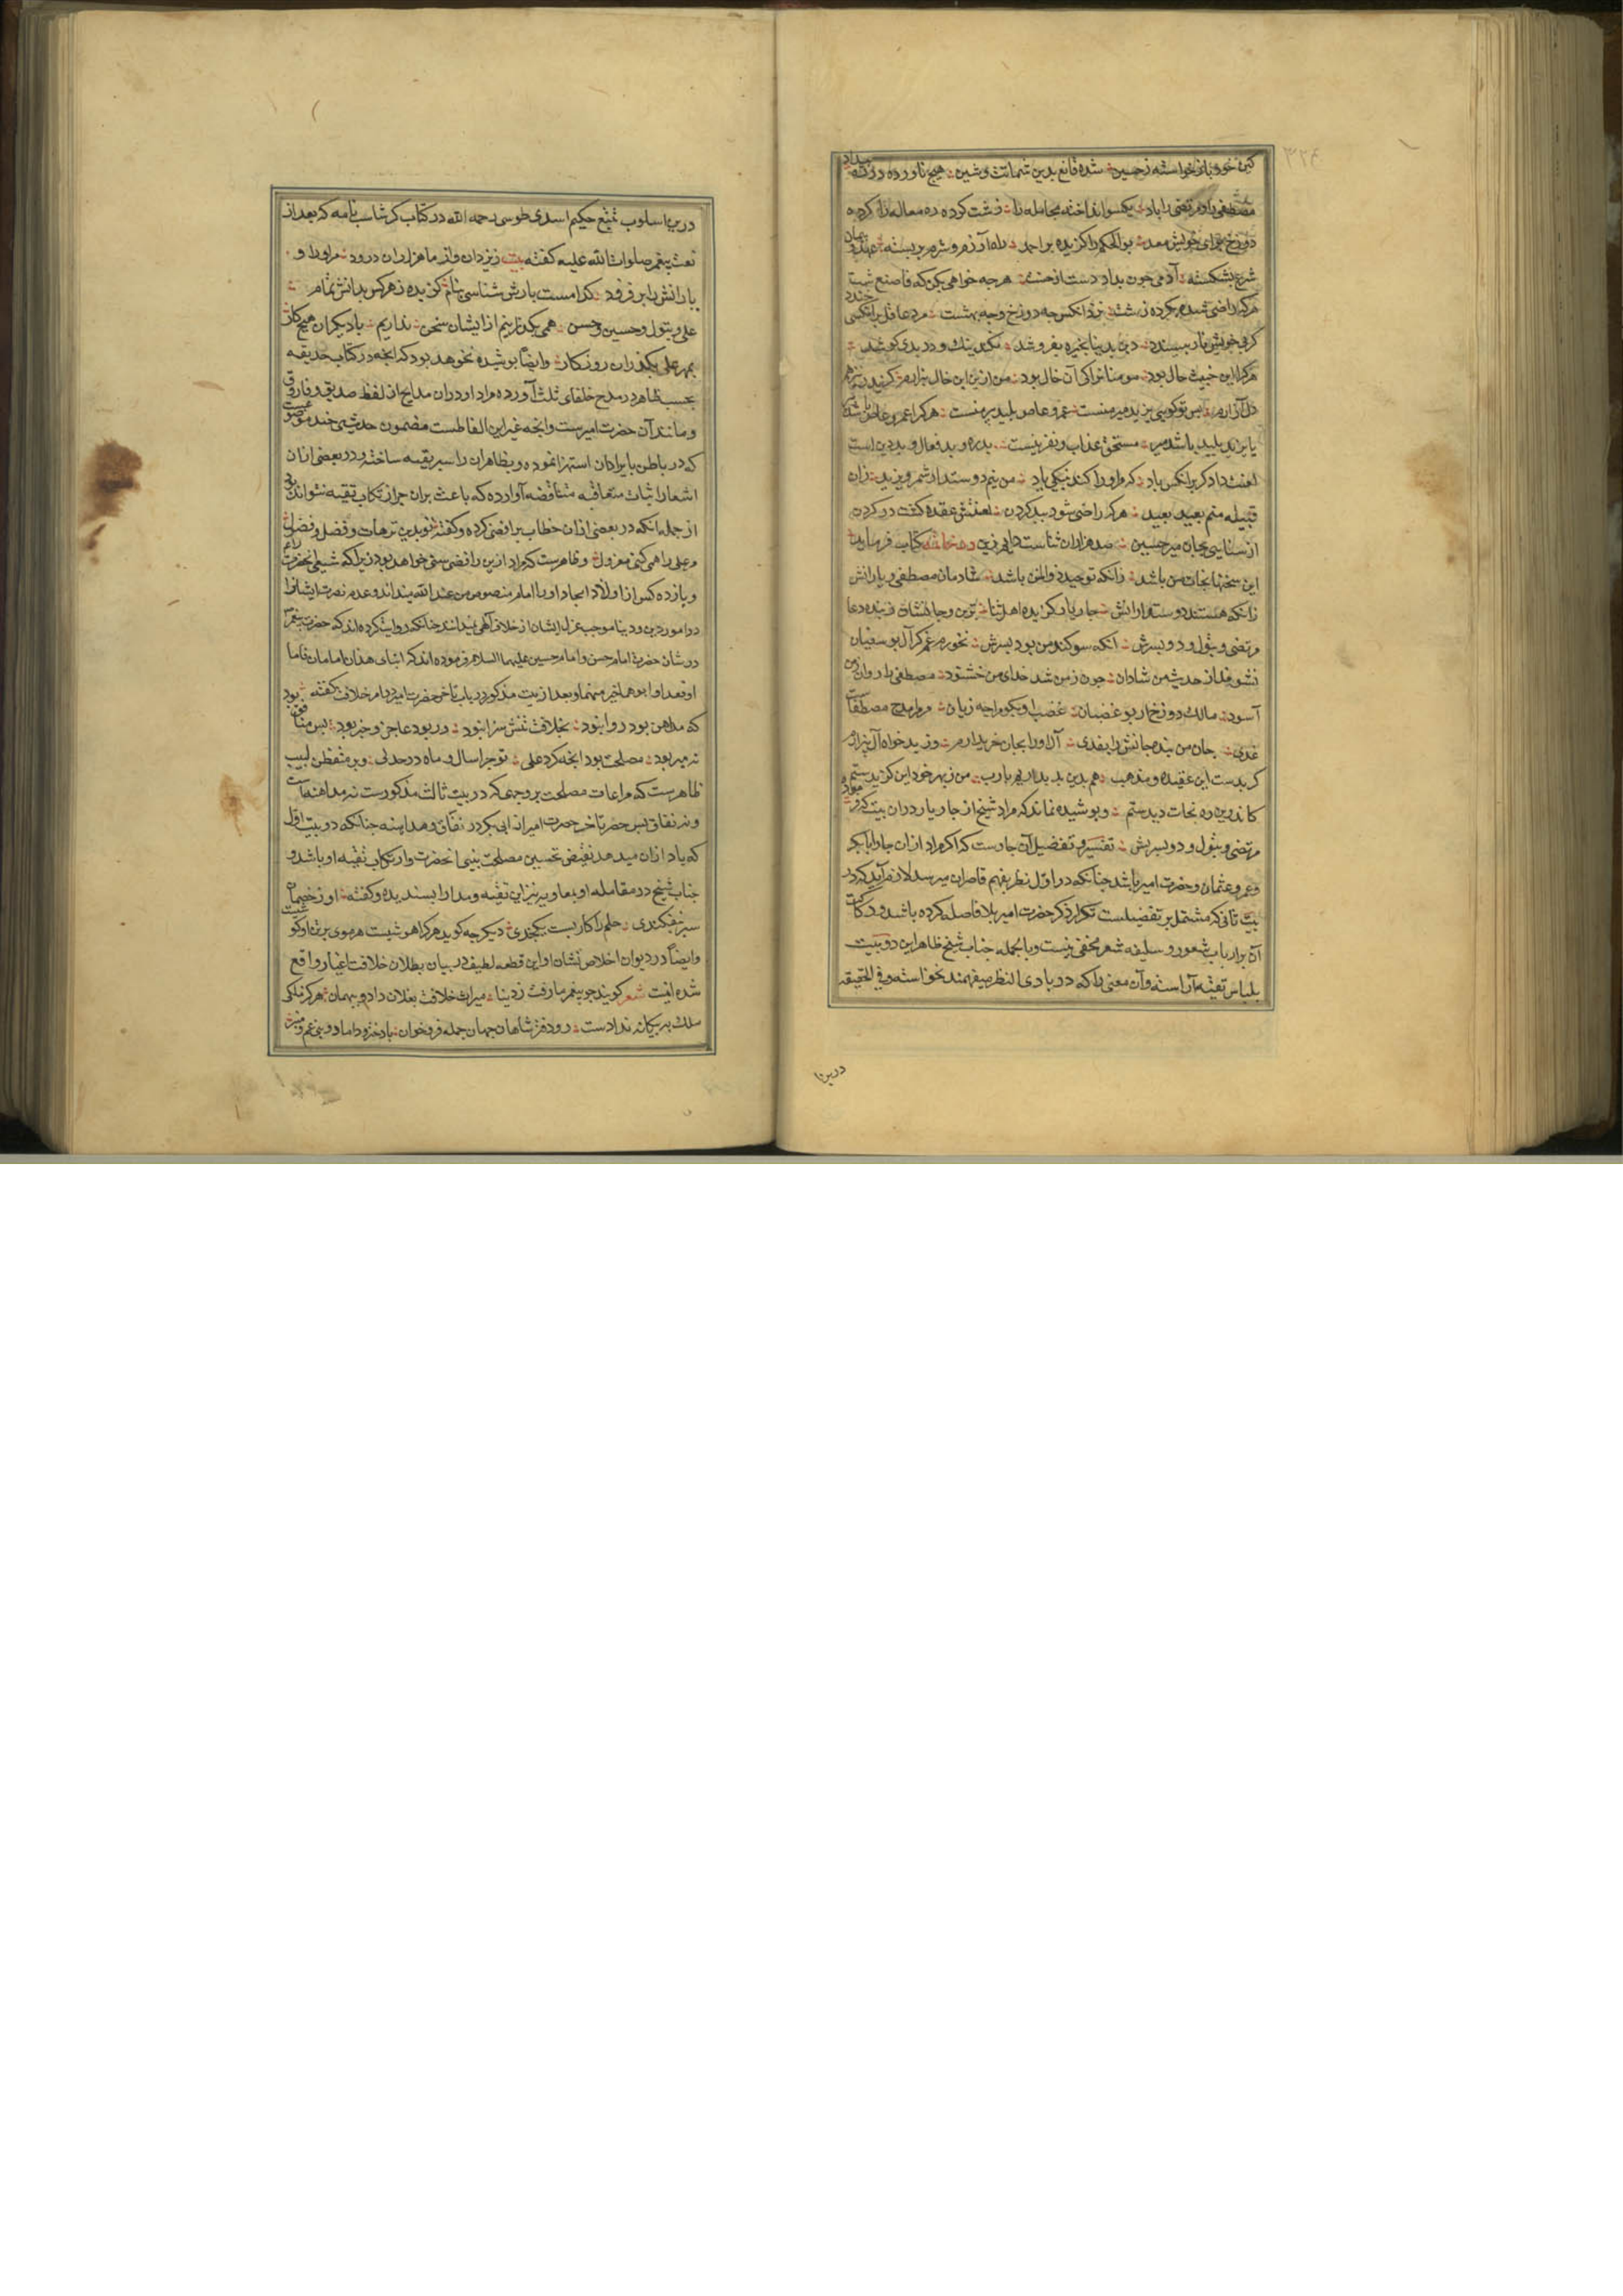 کین خود باز خواسته ز حسین شده قانع بدین شماتت و شین هیچ ناورده در ره بیداد
مصطفی را و مرتضی را یاد یکسو انداخته مجامله را زشت کرده ره معامله را کرده
دوزخ برای خویش معد بو الحکم را گزیده بر احمد راه آزرم و شرم بر بسته عهد و پیمان
شرع بشکسته آدمی چون بداد دست از صنع هرچه خواهی بکن که فاصنع شئت
هرکه راضی شود بکرده زشت نزد انکس چه دوزخ و چه بهشت مرد عاقل بر انکسی خندد
کز پی خویش نار بپسندد دین بدنیا بخیره بفروشد نکند نیک و در بدی کوشد
هرکرا این خبیث حال بود مومنا نراکی آن خال بود من ازین ابن خال بیزارم کز پدر نیز هم
دل آزارم پس تو کویی یزید میر منست عمرو عاص پلید پیر منست هرکرا عمرو عاص باشد
یا یزید پلید باشد میر مستحق عذاب و نفرینست بد ره و بد فعال و بد دین است
لعنت دادکر بر انکس باد که مر او را کند بنیکی یاد من نیم دوستدار شمر و یزید زان
قبیله منم بعید بعید هرکه راضی شود ببد کردن لعنتش عقده کشت در کردن
از سنایی بجان میر حسین صد هزاران ثناست دایم زین در خاتمه کتاب فرماید
این سخنها نجات من باشد زانکه توحید ذو المن باشد شادمان مصطفی و یارانش
زانکه هستند دوستدارانش چار یار کزیده اهل ثنا بر تن و جانشان ز بنده دعا
مرتضی و بتول و دو پسرش انکه سوکند من بود بسرش نخورم غم کر آل بو سفیان
نشوند از حدیث من شادان چون ز من شد خدای من خشنود مصطفی را ز من روان
آسود مالک دوزخ ار بو غضبان غضب او بگو مرا چه زیان مر مرا مدح مصطفاست
غذی جان من بنده جانش را بفدی آل او را بجان خریدارم وز بد خواه آل بیزارم
کر بدست این عقیده و مذهب هم بدین بد بداریم یارب من ز بهر خود این کزیدستم
کاندرین ره نجات دیدستم و پوشیده نماند که مراد شیخ از چار یار دران بیت که مراد
مرتضی و بتول و دو پسرش تفسیر و تفضیل آن چارست که اکر مراد ازان چار ابابکر
و عمر و عثمان و حضرت امیر باشد چنانکه در اول نظر بفهم قاصران میرسد لازم آید که در
بیت ثانی که مشتمل بر تفضیلست تکرار ذکر حضرت امیر بلا فاصله کرده باشد و رکاکت
آن بر ارباب شعور و سلیقه شعر مخفی نیست و بالجمله جناب شیخ ظاهر این دو بیت
بلباس تقیه آراسته و آن معنی را که در بادی النظر میفهمند نخواسته و فی الحقیقه
درین
درین اسلوب تتبع حکیم اسدی طوسی رحمه الله در کتاب کرشاسب نامه که بعد از
نعت پیغمبر صلوات الله علیه کفته بیت ز یزدان و از ما هزاران درود مر او را و
یارانش را بر فزود کدامست یارش شناسی بنام کزیده ز هر کس بدانش تمام
علی و بتول و حسین و حسن همی بکذرانیم ازایشان سخن نداریم با دیکران هیچ کار
بمهر علی بکذران روزکار و ایضا پوشیده نخوهد بود که انچه در کتاب حدیقه
بحسب ظاهر در مدح خلفای ثلث آورده مراد او دران مدایح از لفظ صدیق و فاروق
و مانند آن حضرت امیرست و انچه غیر این الفاظست مضمون حدیثی چند موضوعست
که در باطن بایراد ان استهزا نموده و بظاهر ان را سپر تقیه ساخته و در بعضی ازان
اشعار اثبات متعاقبه متناقضه آوارده که باعث بران جز ارتکاب تقیه نتواند بود
از جمله انکه در بعضی ازان خطاب برافضی کرده و کفته تو بدین ترهات و فضل و فضول
مر علی را همی کنی معزول و ظاهرست که مراد ازین رافضی سنی خواهد بود زیرا که شیعی انحضرت را
و یازده کس از اولاد امجاد او را امام منصوص من عند الله میداند و عدم نصرت ایشانرا
در امور دین و دنیا موجب عزل ایشان از خلافت الهی نمیدانند چنانکه روایت کرده اند که حضرت پیغمبر
در شان حضرت امام حسن و امام حسین علیهما السلام فرموده اند که ابنای هذان امامان قاما
او قعدا و ابوهما خیر منهما و بعد از بیت مذکور در باب تاخر حضرت امیر در امر خلافت کفته بود
که مداهن بود روا نبود بخلافت تنش سزا نبود ور بود عاجز و خیر بود پس منافق
نه میر بود مصلحت بود انچه کرد علی تو چرا سال و ماه در جدلی و بر متفطن لبیب
ظاهرست که مراعات مصلحت بر وجهی که در بیت ثالث مذکورست نه مداهنه است
و نه نفاق پس حضر تاخر حضرت امیر از ابی بکر در نفاق و مداهنه چنانکه دو بیت اول
که یاد ازان میدهد نقیض تحسین مصلحت بینی انحضرت و ارتکاب تقیه او باشد و
جناب شیخ در مقامله او بمعاویه نیز این تقیه و مدارا پسندیده و کفته او ز خصمان
سپر نیفکندی حلم را کار بست یکچندی دیکر چه کوید هرکرا هوشیست هر موی بر تن او کو
و ایضا در دیوان اخلاص نشان او این قطعه لطیف در بیان بطلان خلافت اغیار واقع
شده اینت شعر کویند چو پیغمبر ما رفت ز دنیا میراث خلافت بفلان داد و بهمان هرکز ملکی
ملک به بیکانه ندادست رو دفتر شاهان جهان جمله فرو خوان با دختر و داماد و بنی عم و